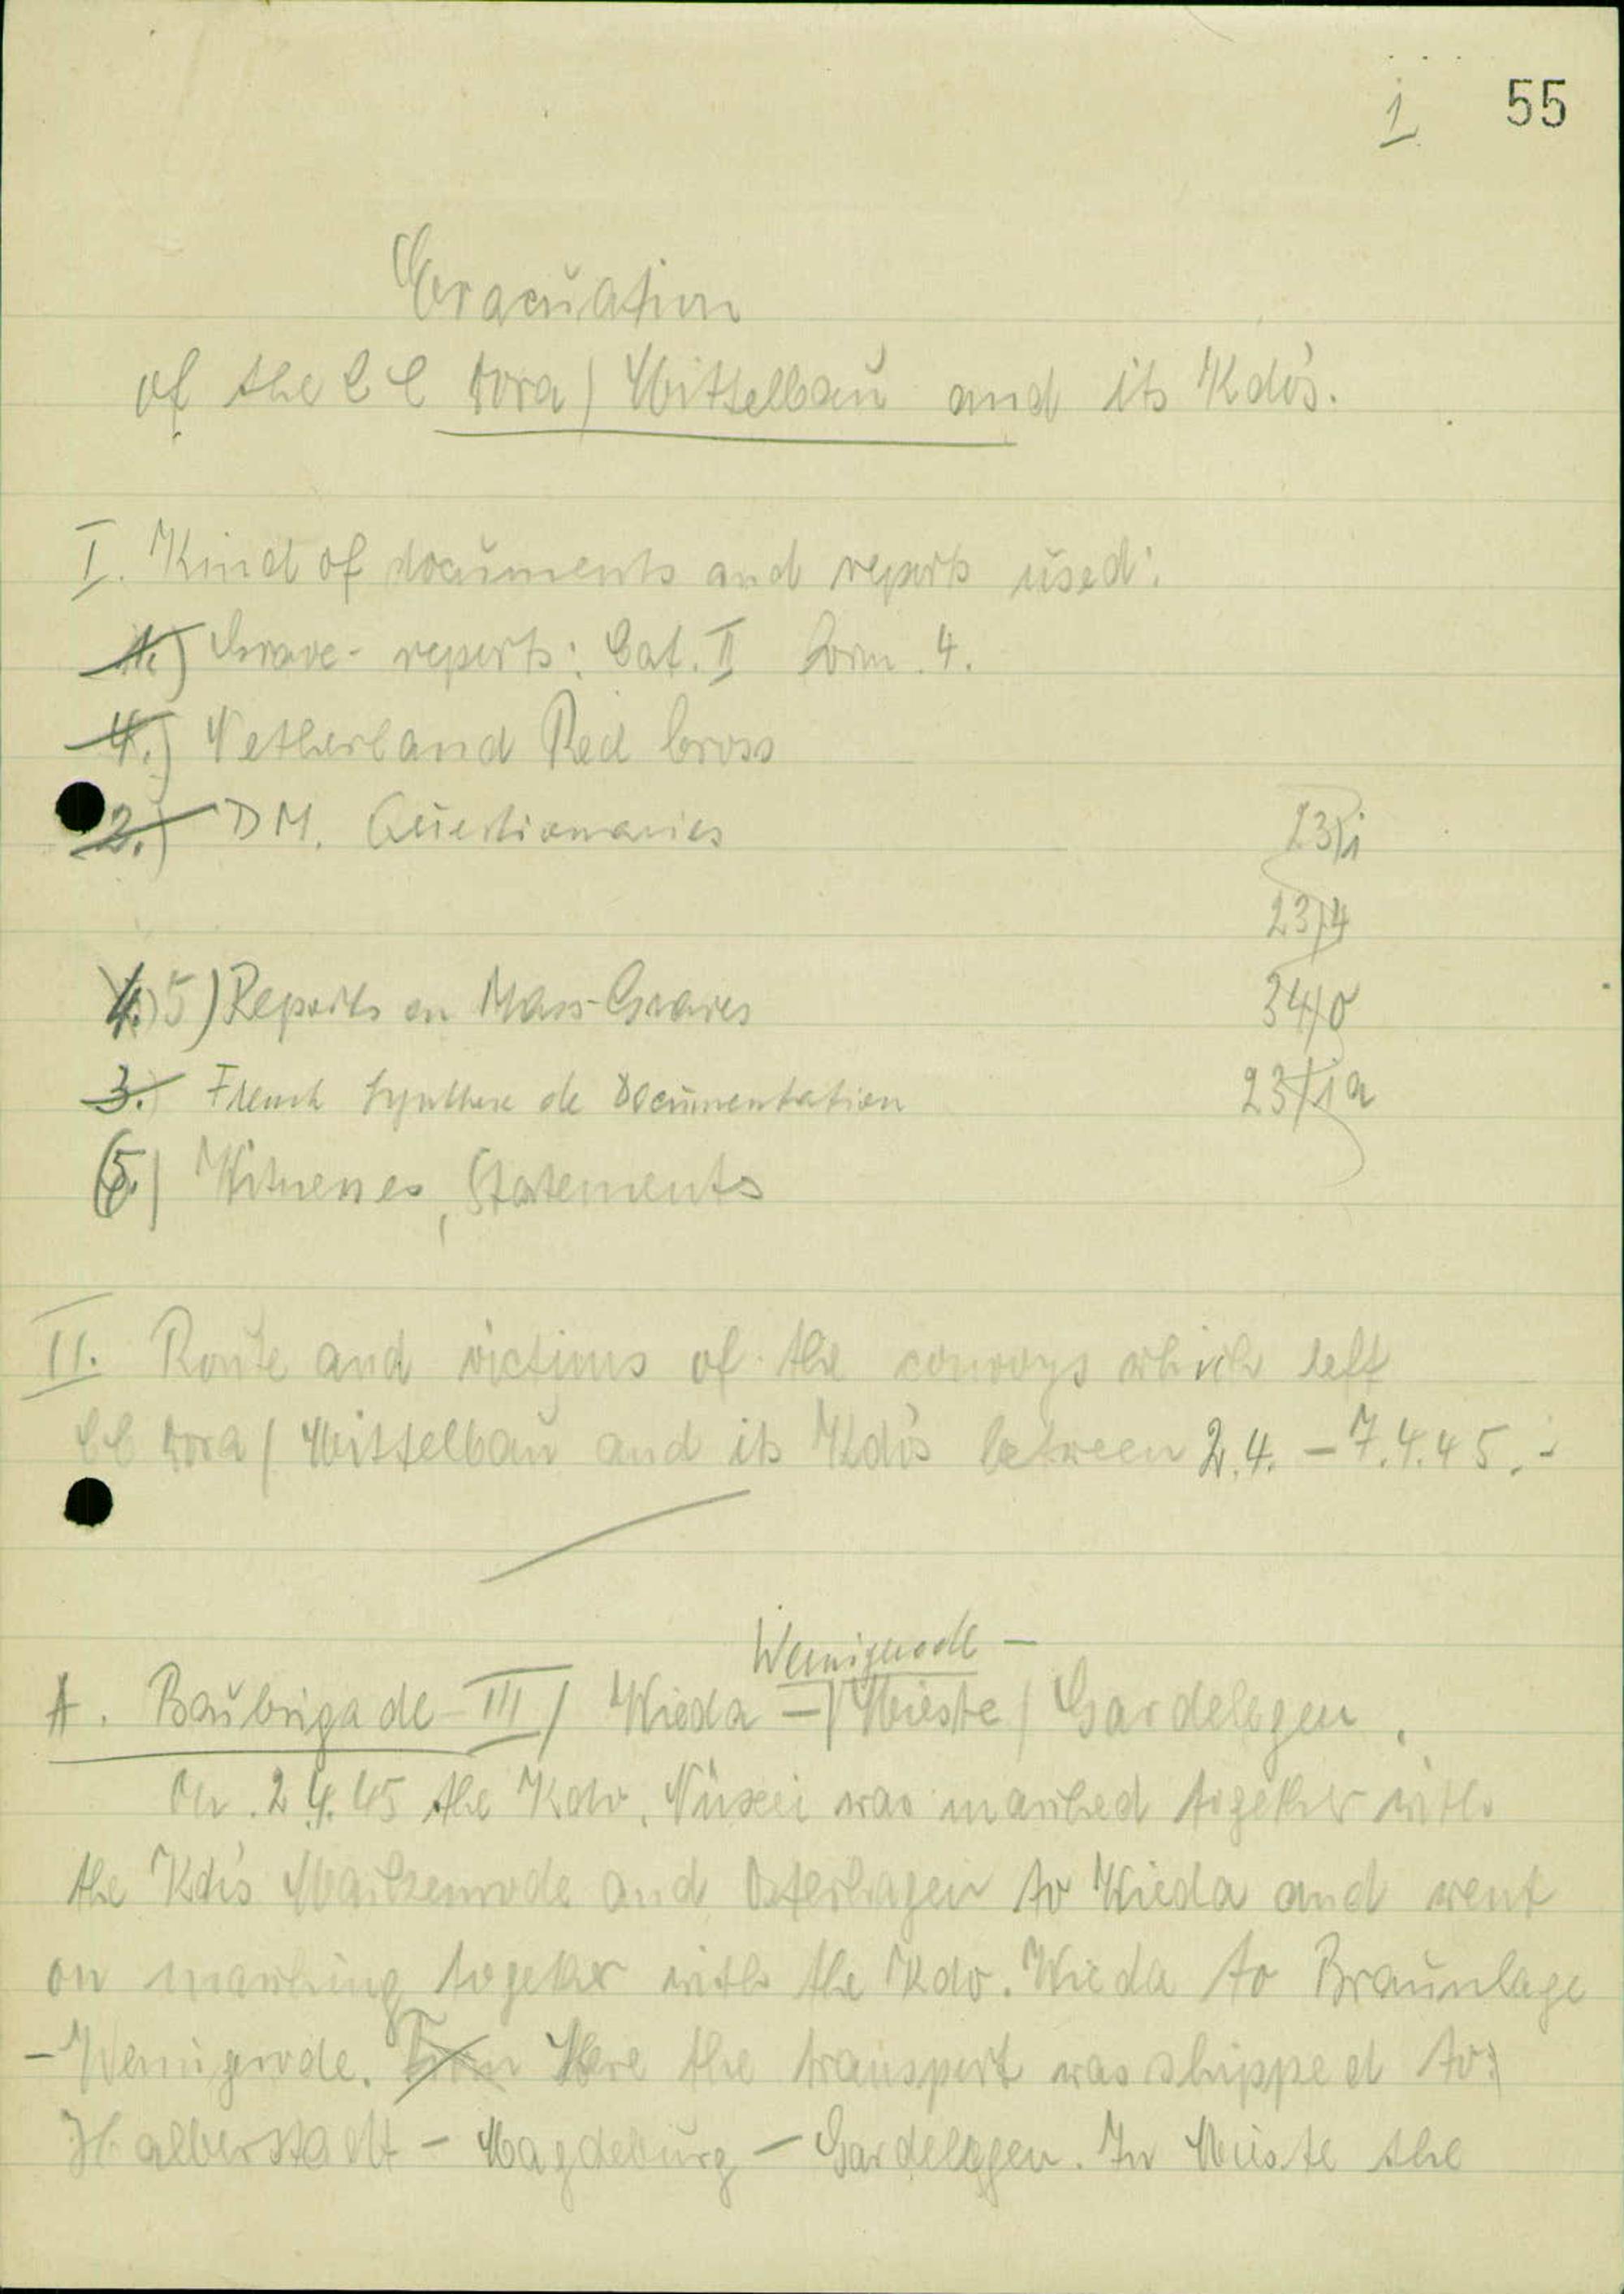 1 55
Evacuation
of the CC Dora/Mittelbau and its Kdo's.
I. Kind of documents and reports used:
1.) Grave-reports: Cat. II Form. 4.
4.) Netherland Red Cross
2.) DM. Questionnaries 23/1
23/4
4.) 5) Reports on Mass-Graves 34/0
3.) French Synthese de Documentation 23/1a
5.) Witnesses, Statements
II. Route and victims of the convoys which left
CC Dora/Mittelbau and its Kdo's between 2.4. – 7.4.45.-
Wernigerode –
A. Baubrigade III/ Wieda – Mieste/Gardelegen.
On 2.4.45 the Kdo. Nüxei was marched together with
the Kdo's Mackenrode and Osterhagen to Wieda and went
on marching together with the Kdo. Wieda to Braunlage
- Wernigerode. From Here the transport was shipped to:
Halberstadt – Magdeburg – Gardelegen. In Mieste the